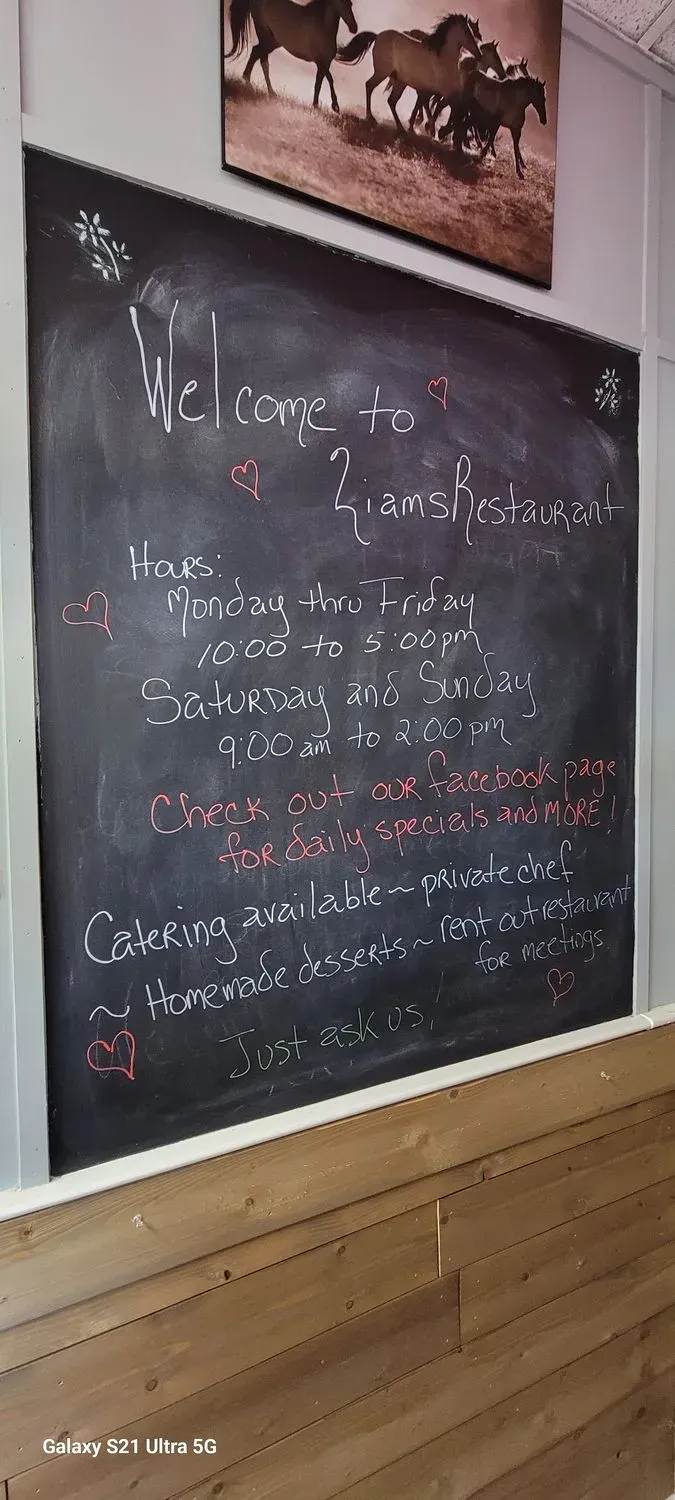 Welcome to
Ziams Restaurant
Hours:
Monday thru Friday
10:00 to 5:00pm
Saturday and Sunday
9:00 am to 2:00 pm
Check out our facebook page
for daily specials and MORE!
Catering available ~ private chef
~ Homemade desserts ~ rent out restaurant
for meetings.
Just ask us!
Galaxy S21 Ultra 5G